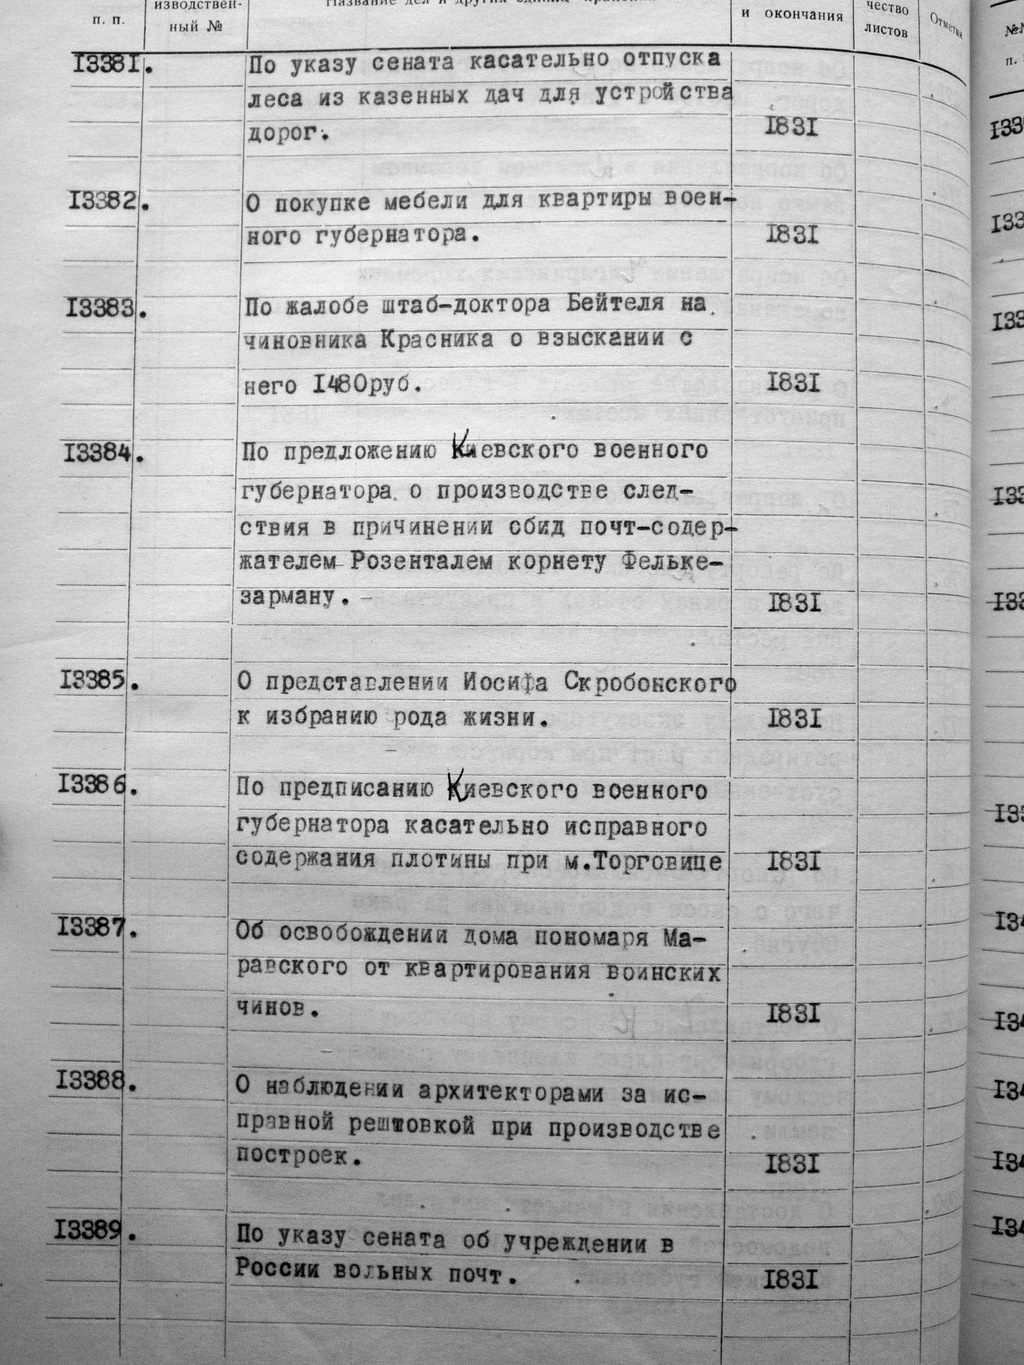 п. п.
изводствен-
ный №
Название дел и других единиц
и окончания
чество
листов
Отметки
13381.
По указу сената касательно отпуска
леса из казенных дач для устройства
дорог.
1831
13382.
О покупке мебели для квартиры воен-
ного губернатора.
1831
13383.
По жалобе штаб-доктора Бейтеля на
чиновника Красника о взыскании с
него 1480руб.
1831
13384.
По предложению Киевского военного
губернатора о производстве след-
ствия в причинении обид почт-содер-
жателем Розенталем корнету Фельке-
зарману. -
1831
13385.
О представлении Иосифа Скробонского
к избранию рода жизни.
1831
13386.
По предписанию Киевского военного
губернатора касательно исправного
содержания плотины при м.Торговице
1831
13387.
Об освобождении дома пономаря Ма-
равского от квартирования воинских
чинов.
1831
13388.
О наблюдении архитекторами за ис-
правной рештовкой при производстве
построек.
1831
13389.
По указу сената об учреждении в
России вольных почт.
1831